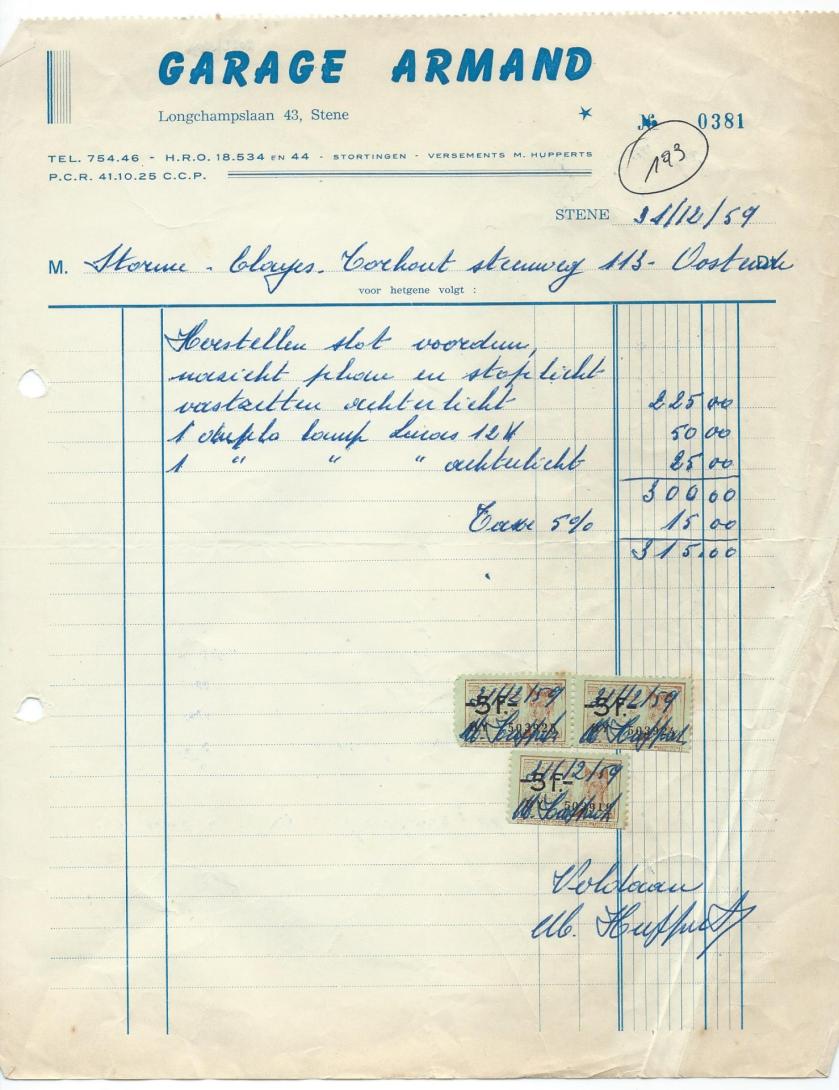 GARAGE ARMAND
Longchampslaan 43, Stene
№ 0381
193
TEL. 754.46 - H.R.O. 18.534 EN 44 - STORTINGEN - VERSEMENTS M. HUPPERTS
P.C.R. 41.10.25 C.C.P.
STENE 31/12/59
M. Storme - Clayes - Torhout steenweg 113 - Oostende Dt
voor hetgene volgt :
Herstellen slot voordeur,
nazicht phare en stoplicht
vastzetten achterlicht 225 00
1 duplo lamp Lucas 12V 50 00
1 " " " achterlicht 25 00
300 00
Taxe 5% 15 00
315.00
31/12/59 31/12/59
-5F.- -5F.-
M. Huppert M. Huppert
31/12/59
-5F.-
M. Huppert
Voldaan
M. Huppert